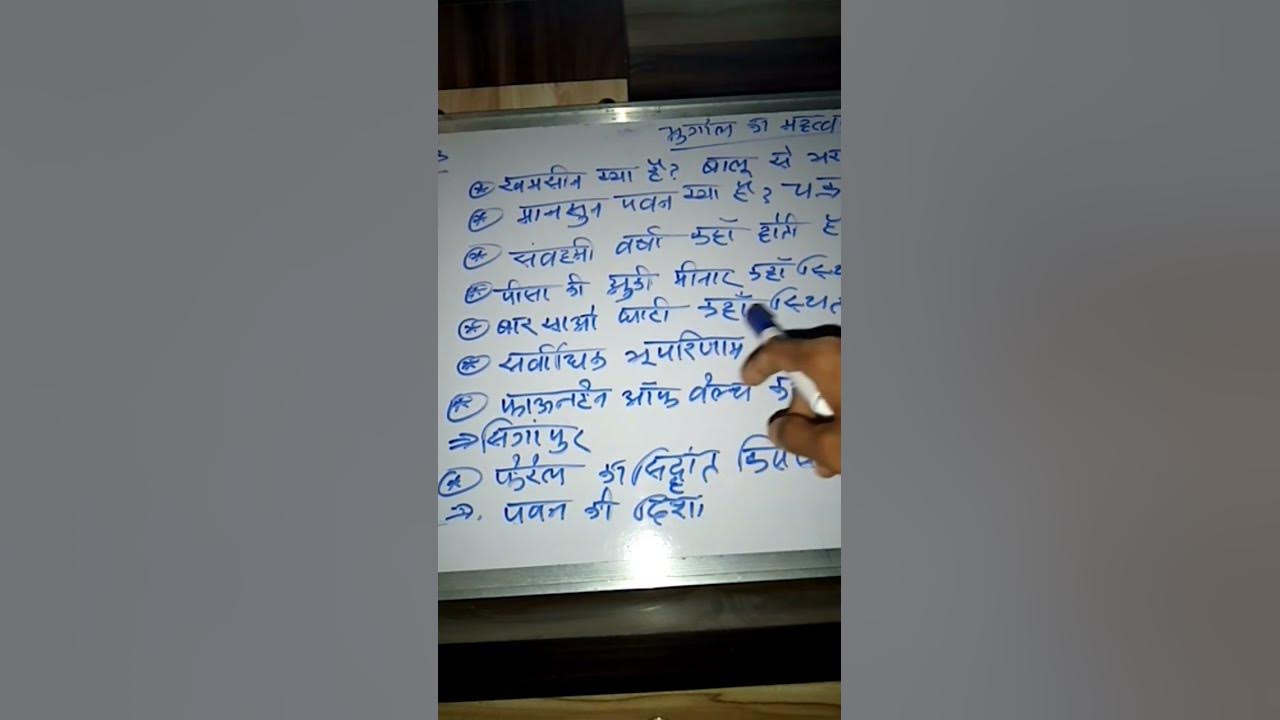 भुगोल का महत्व
* खमसीन क्या है? बालू से भर
* मानसुन पवन क्या है? चक्र
* संवहनी वर्षा कहाँ होती है
* पीसा की झुकी मीनार कहाँ स्थि
* बारसाओ घाटी कहाँ स्थित
* सर्वाधिक भूपरिणाम
* फाऊनटेन ऑफ वेल्थ क
⇒ सिगांपुर
* फेरेल का सिद्धांत किस
⇒. पवन की दिशा